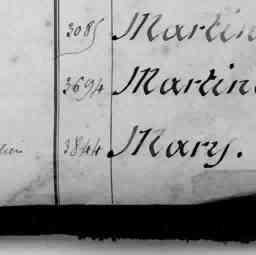 3085 Martin
3694 Martin
3844 Mary.